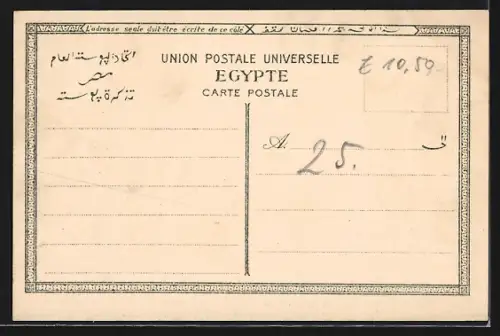 L'adresse seule doit être écrite de ce côté
اتحاد البوستة العام
مصر
تذكرة بوستة
UNION POSTALE UNIVERSELLE
EGYPTE
CARTE POSTALE
£ 10,50
A:
الى
25.